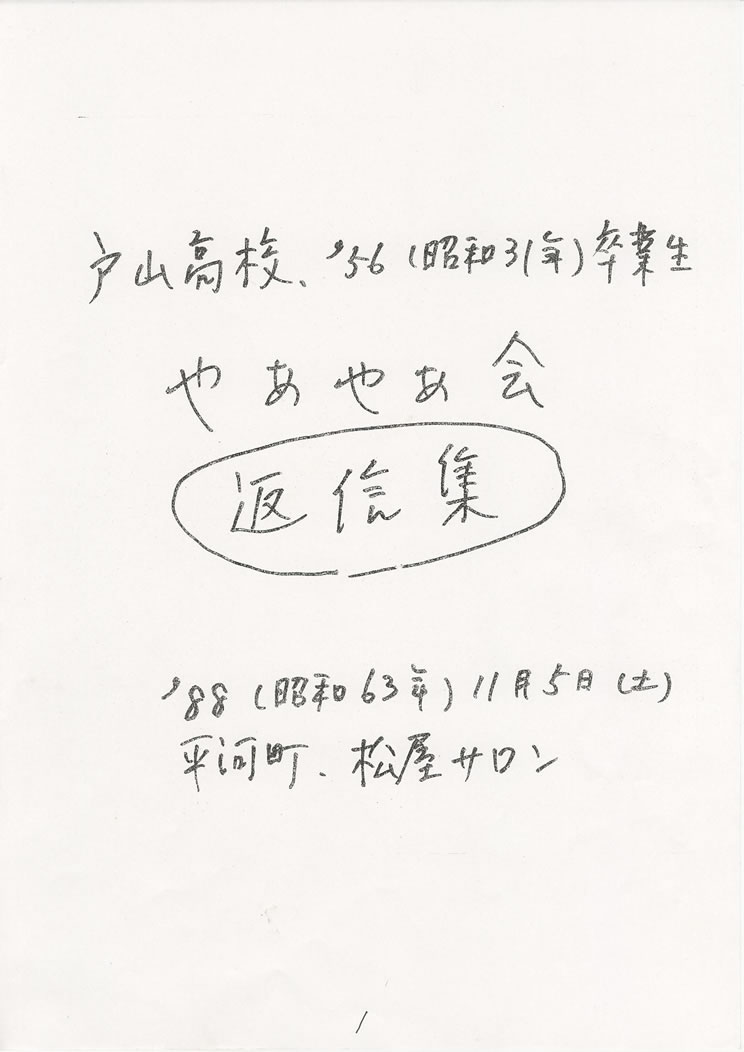 戸山高校、'56(昭和31年)卒業生
やあやあ会
返信集
'88(昭和63年)11月5日(土)
平河町、松屋サロン
1